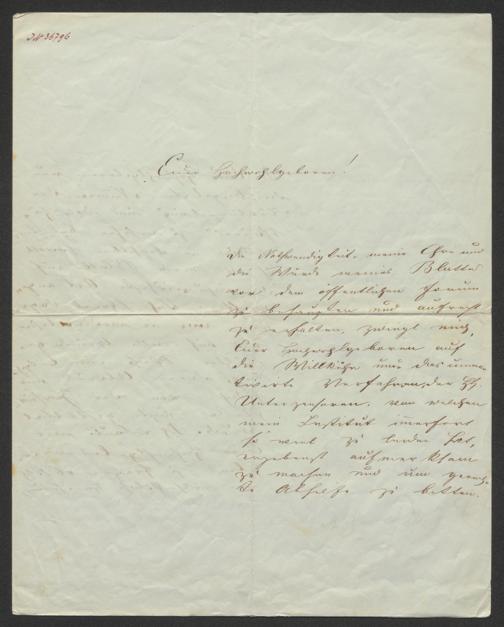 JN 36796
Euer Hochwohlgeboren!
Die Nothwendigkeit, meine Ehre und
die Würde meines Blattes
vor dem öffentlichen Forum
zu behaupten und aufrecht
zu erhalten, zwingt mich,
Euer Hochwohlgeboren auf
die Willkühr und das unmo-
tivirte Verfahren der HH.
Untercensoren, von welchen
mein Institut immerfort
so viel zu leiden hat,
ergebenst aufmerksam
zu machen und um
Abhilfe zu bitten.